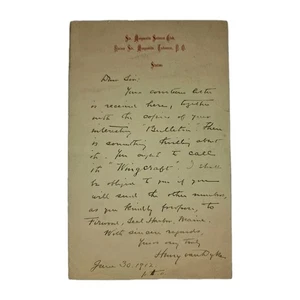 Ste. Marguerite Salmon Club,
Dear Sir:
Your courteous letter
is received here, together
with the copies of your
interesting "Bulletin". There
is something thrilling about
it. You ought to call
it "Wingcraft". I shall
be obliged to you if you
will send the other numbers,
as you kindly propose, to
Seal Harbor, Maine.
With sincere regards,
Yours very truly
Henry van Dyke
June 30. 1912